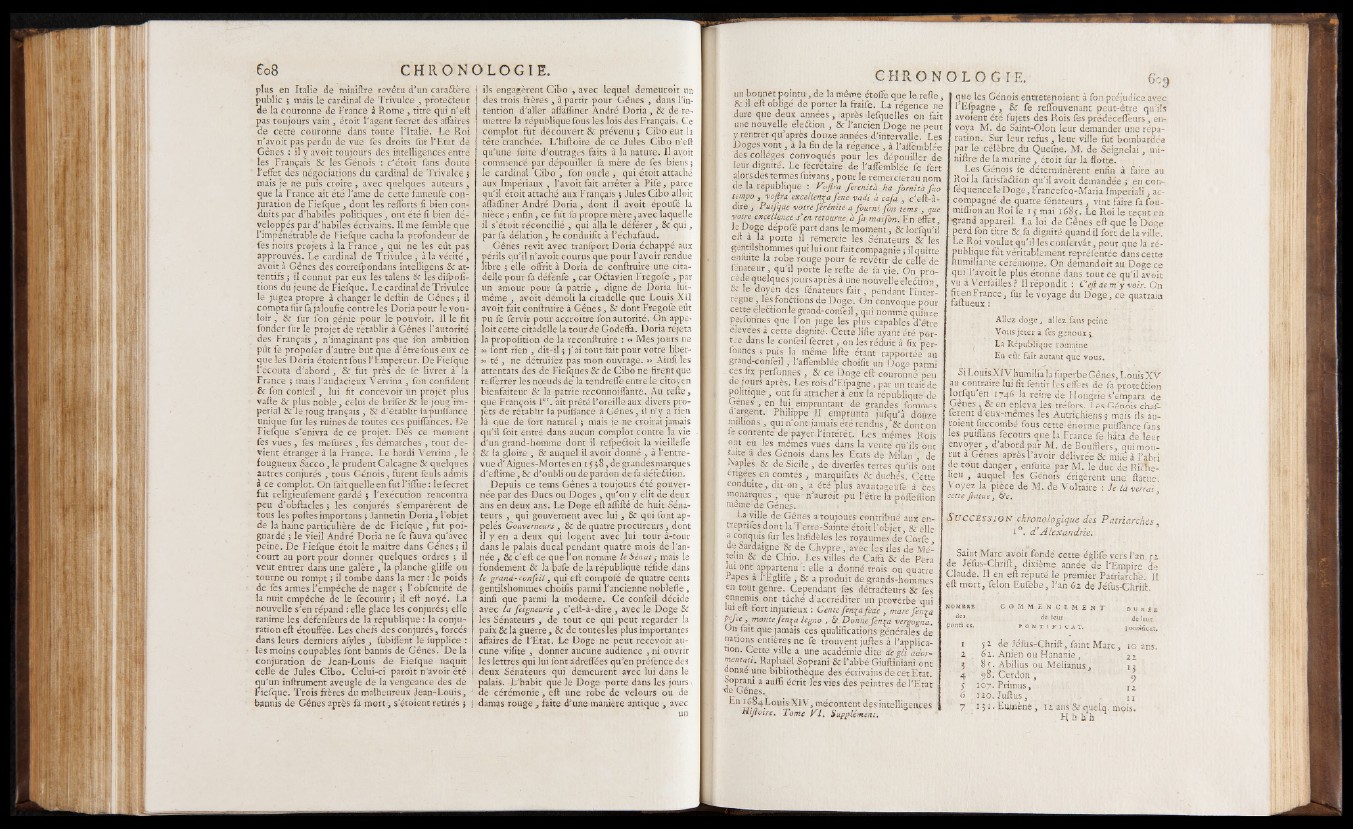 608
CHRONOLOGIE.
plus en Italie de ministre revêtu d'un caractère
public ; mais le cardinal de Trivulce , protecteur
de la couronne de France à Rome , titre qui n'est
pas toujours vain , étoit l'agent secret des affaires
de cette couronne dans toute l'Italie. Le Roi
n'avoit pas perdu de vue ses droits sur l'Etat de
Gênes : il y avoit toujours des intelligences entre
les Français & les Génois : c'étoit sans doute
l'effet des négociations du cardinal de Trivulce ;
mais je ne puis croire , avec quelques auteurs ,
que la France ait été l'ame de cette fameuse con-
juration de Fiesque , dont les ressorts si bien con-
duits par d'habiles politiques , ont été si bien dé-
veloppés par d'habiles écrivains. Il me semble que
l'impénétrable de Fiesque cacha la profondeur de
ses noirs projets à la France , qui ne les eût pas
approuvés. Le cardinal de Trivulce , à la vérité ,
avoit à Gênes des correspondans intelligens & at-
tentifs ; il connut par eux les talens & les disposi-
tions du jeune de Fiesque. Le cardinal de Trivulce
le jugea propre à changer le destin de Gênes ; il
compta sur sa jalousie contre les Doria pour le vou-
loir , & sur son génie pour le pouvoir. Il le fit
sonder sur le projet de rétablir à Gênes l'autorité
des Français , n'imaginant pas que son ambition
pût se proposer d'autre but que d'être sous eux ce
que les Doria étoient sous l'Empereur. De Fiesque
l'écouta d'abord , & fut près de se livrer à la
France ; mais l'audacieux Verrina , son confident
& son conseil , lui fit concevoir un projet plus
vaste & plus noble , celui de briser & le joug im-
périal & le joug français , & d'établir sa puissance
unique sur les ruines de toutes ces puissances. De
Fiesque s'enivra de ce projet. Dès ce moment
ses vues , ses mesures , ses démarches , tout de-
vient étranger à la France. Le hardi Verrina , le
fougueux Sacco , le prudent Calcagne & quelques
autres conjurés , tous Génois , furent seuls admis
à ce complot. On sait quelle en fut l'issue : le secret
fut religieusement gardé ; l'exécution rencontra
peu d'obstacles ; les conjurés s'emparèrent de
tous les postes importans ; Jannetin Doria , l'objet
de la haine particulière de de Fiesque , fut poi-
gnardé ; le vieil André Doria ne se sauva qu'avec
peine. De Fiesque étoit le maître dans Gênes ; il
court au port pour donner quelques ordres ; il
veut entrer dans une galère , la planche glisse ou
tourne ou rompt ; il tombe dans la mer : le poids
de ses armes l'empêche de nager ; l'obscurité de
la nuit empêche de le secourir ; il est noyé. La
nouvelle s'en répand : elle glace les conjurés ; elle
ranime les défenseurs de la république : la conju-
ration est étouffée. Les chefs des conjurés , forcés
dans leurs derniers asyles , subissent le supplice :
les moins coupables sont bannis de Gênes. De la
conjuration de Jean-Louis de Fiesque naquit
celle de Jules Cibo. Celui-ci paroît n'avoir été
qu'un instrument aveugle de la vengeance des de
Fiesque. Trois frères du malheureux Jean-Louis ,
bannis de Gênes après sa mort , s'étoient retirés ;
ils engagèrent Cibo , avec lequel demeuroit un
des trois frères , à partir pour Gênes , dans l'in-
tention d'aller assassiner André Doria , & de re-
mettre la république sous les lois des Français. Ce
complot fut découvert & prévenu ; Cibo eut la
tête tranchée. L'histoire de ce Jules Cibo n'est
qu'une suite d'outrages faits à la nature. Il avoit
commencé par dépouiller sa mère de ses biens ;
le cardinal Cibo , son oncle , qui étoit attaché
aux Impériaux , l'avoit fait arrêter à Pise , parce
qu'il étoit attaché aux Français ; Jules Cibo alloit
assassiner André Doria , dont il avoit épousé la
nièce ; enfin , ce fut sa propre mère , avec laquelle
il s'étoit réconcilié , qui alla le déférer , & qui ,
par sa délation , le conduisit à l'échafaud.
Gênes revit avec transport Doria échappé aux
périls qu'il n'avoit courus que pour l'avoir rendue
libre ; elle offrit à Doria de construire une cita-
delle pour sa défense , car Octavien Fregose , par
un amour pour sa patrie , digne de Doria lui-
même , avoit démoli la citadelle que Louis XII
avoit fait construire à Gênes , & dont Fregose eût
pu se servir pour accroître son autorité. On appe-
loit cette citadelle la tour de Godefa. Doria rejeta
la proposition de la reconstruire : « Mes jours ne
» sont rien , dit-il ; j'ai tout fait pour votre liber-
» té , ne détruisez pas mon ouvrage. » Ainsi les
attentats des de Fiesques & de Cibo ne firent que
resserrer les nœuds de la tendresse entre le citoyen
bienfaiteur & la patrie reconnoissante. Au reste ,
que François Ier. ait prêté l'oreille aux divers pro-
jets de rétablir sa puissance à Gênes , il n'y a rien
là que de fort naturel ; mais je ne croirai jamais
qu'il soit entré dans aucun complot contre la vie
d'un grand-homme dont il respectoit la vieillesse
& la gloire , & auquel il avoit donné , à l'entre-
vue d'Aigues-Mortes en 1538 , de grandes marques
d'estime , & d'oubli ou de pardon de sa défection.
Depuis ce tems Gênes a toujours été gouver-
née par des Ducs ou Doges , qu'on y élit de deux
ans en deux ans. Le Doge est assisté de huit Séna-
teurs , qui gouvernent avec lui , & qui sont ap-
pelés Gouverneurs , & de quatre procureurs , dont
il y en a deux qui logent avec lui tour-à-tour
dans le palais ducal pendant quatre mois de l'an-
née , & c'est ce que l'on nomme le Sénat ; mais le
fondement & la base de la république réside dans
le grand-conseil , qui est composé de quatre cents
gentilshommes choisis parmi l'ancienne noblesse ,
ainsi que parmi la moderne. Ce conseil décide
avec la seigneurie , c'est-à-dire , avec le Doge &
les Sénateurs , de tout ce qui peut regarder la
paix & la guerre , & de toutes les plus importantes
affaires de l'Etat. Le Doge ne peut recevoir au-
cune visite , donner aucune audience , ni ouvrir
les lettres qui lui sont adressées qu'en présence des
deux Sénateurs qui demeurent avec lui dans le
palais. L'habit que le Doge porte dans les jours
de cérémonie , est une robe de velours ou de
damas rouge , faite d'une manière antique , avec
un
CHRONOLOGIE.
609
un bonnet pointu , de la même étoffe que le reste ,
& il est obligé de porter la fraise. La régence ne
dure que deux années , après lesquelles on fait
une nouvelle élection , & l'ancien Doge ne peut
y rentrer qu'après douze années d'intervalle. Les
Doges vont , à la fin de la régence , à l'assemblée
des colléges convoqués pour les dépouiller de
leur dignité. Le secrétaire de l'assemblée se sert
alors des termes suivans , pour le remercier au nom
de la république : Vostra serenita ha fornita suo
tempo , vostra excellença sene vadi a casa , c'est-à-
dire , Puisque votre sérénité a fourni son tems , que
votre excellence s'en retourne à sa maison. En effet ,
le Doge déposé part dans le moment , & lorsqu'il
est à la porte il remercie les Sénateurs & les
gentilshommes qui lui ont fait compagnie ; il quitte
ensuite la robe rouge pour se revêtir de celle de
sénateur , qu'il porte le reste de sa vie. On pro-
cède quelques jours après à une nouvelle élection ,
& le doyen des sénateurs fait , pendant l'inter-
règne , les fonctions de Doge. On convoque pour
cette élection le grand-conseil , qui nomme quinze
personnes que l'on juge les plus capables d'être
élevées à cette dignité. Cette liste ayant été por-
tée dans le conseil secret , on les réduit à six per-
sonnes ; puis la même liste étant rapportée au
grand-conseil , l'assemblée choisit un Doge parmi
ces six personnes , & ce Doge est couronné peu
de jours après. Les rois d'Espagne , par un trait de
politique , ont su attacher à eux la république de
Gênes , en lui empruntant de grandes sommes
d'argent. Philippe II emprunta jusqu'à douze
millions , qui n'ont jamais été rendus , & dont on
se contente de payer l'intérêt. Les mêmes Rois
ont eu les mêmes vues dans la vente qu'ils ont
faite à des Génois dans les Etats de Milan , de
Naples & de Sicile , de diverses terres qu'ils ont
érigées en comtés , marquisats & duchés. Cette
conduite , dit-on , a été plus avantageuse à ces
monarques , que n'auroit pu l'être la possession
même de Gênes.
La ville de Gênes a toujours contribué aux en-
treprises dont la Terre-Sainte étoit l'objet , & elle
a conquis sur les Infidèles les royaumes de Corse ,
de Sardaigne & de Chypre , avec les îles de Mé-
telin & de Chio. Les villes de Caffa & de Pera
lui ont appartenu : elle a donné trois ou quatre
Papes à l'Eglise , & a produit de grands-hommes
en tout genre. Cependant ses détracteurs & ses
ennemis ont tâché d'accréditer un proverbe qui
lui est fort injurieux : Gente senza fede , mare senza
pesce , monte senza legno , & Donne senza vergogna.
On sait que jamais ces qualifications générales de
nations entières ne se trouvent justes à l'applica-
tion. Cette ville a une académie dite de gli ador-
mentati. Raphaël Soprani & l'abbé Giustiniani ont
donné une bibliothèque des écrivains de cet Etat.
Soprani a aussi écrit les vies des peintres de l'Etat
de Gênes.
En 1684 Louis XIV , mécontent des intelligences
Histoire. Tome VI. Supplément.
que les Génois entretenoient à son préjudice avec
l'Espagne , & se ressouvenant peut-être qu'ils
avoient été sujets des Rois ses prédécesseurs , en-
voya M. de Saint-Olon leur demander une répa-
ration. Sur leur refus , leur ville fut bombardée
par le célèbre du Quesne. M. de Seignelai , mi-
nistre de la marine , étoit sur la flotte.
Les Génois se déterminèrent enfin à faire au
Roi la satisfaction qu'il avoit demandée ; en con-
séquence le Doge , Francesco-Maria Imperiali , ac-
compagné de quatre sénateurs , vint faire sa sou-
mission au Roi le 15 mai 1685. Le Roi le reçut en
grand appareil. La loi de Gênes est que le Doge
perd son titre & sa dignité quand il sort de la ville.
Le Roi voulut qu'il les conservât , pour que la ré-
publique fût véritablement représentée dans cette
humiliante cérémonie. On demandoit au Doge ce
qui l'avoit le plus étonné dans tout ce qu'il avoit
vu à Versailles ? Il répondit : C'est de m'y voir. On
fit en France , sur le voyage du Doge , ce quatrain
fastueux :
Allez doge , allez sans peine
Vous jeter à ses genoux ;
La République romaine
En eût fait autant que vous.
Si Louis XIV humilia la superbe Gênes , Louis XV
au contraire lui fit sentir les effets de sa protection
lorsqu'en 1746 la reine de Hongrie s'empara de
Gênes , & en enleva les trésors. Les Génois chas-
sèrent d'eux-mêmes les Autrichiens ; mais ils au-
roient succombé sous cette énorme puissance sans
les puissans secours que la France se hâta de leur
envoyer , d'abord par M. de Boufflers , qui mou-
rut à Gênes après l'avoir délivrée & mise à l'abri
de tout danger , ensuite par M. le duc de Riche-
lieu , auquel les Génois érigèrent une statue.
Voyez la pièce de M. de Voltaire : Je la verrai ,
cette statue , &c.
SUCCESSION chronologique des Patriarches ,
1°. d'Alexandrie.
Saint Marc avoit fondé cette église vers l'an 52
de Jésus-Christ , dixième année de l'Empire de
Claude. Il en est réputé le premier Patriarche. Il
est mort , selon Eusebe , l'an 62 de Jésus-Christ.
NOMBRE des pontifes.
COMMENCEMENT de leur PONTIFICAT.
DURÉE de leur pontificat.
1 52 de Jésus-Christ , saint Marc , 10 ans.
2 62. Anien ou Hananie , 22
3 85. Abilius ou Melianus , 13
4 98. Cerdon , 9
5 107. Primus , 12
6 120. Justus , 11
7 131. Eumène , 12 ans & quelq. mois.
Hhhh